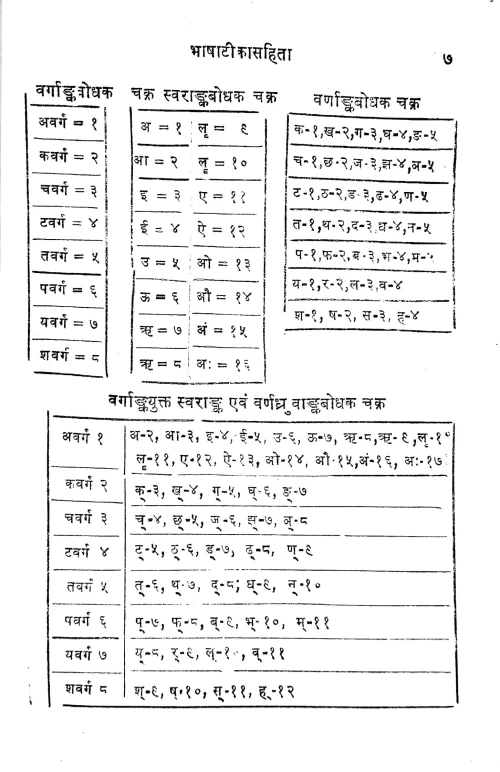 भाषाटीकासहिता
७
वर्गाङ्कबोधक
अवर्ग = १
कवर्ग = २
चवर्ग = ३
टवर्ग = ४
तवर्ग = ५
पवर्ग = ६
यवर्ग = ७
शवर्ग = ८
चक्र स्वराङ्कबोधक चक्र
अ = १ लृ = ९
आ = २ लॄ = १०
इ = ३ ए = ११
ई = ४ ऐ = १२
उ = ५ ओ = १३
ऊ = ६ औ = १४
ऋ = ७ अं = १५
ॠ = ८ अः = १६
वर्णाङ्कबोधक चक्र
क-१,ख-२,ग-३,घ-४,ङ-५
च-१,छ-२,ज-३,झ-४,ञ-५
ट-१,ठ-२,ड-३,ढ-४,ण-५
त-१,थ-२,द-३,ध-४,न-५
प-१,फ-२,ब-३,भ-४,म-५
य-१,र-२,ल-३,व-४
श-१, ष-२, स-३, ह-४
वर्गाङ्कयुक्त स्वराङ्क एवं वर्णध्रुवाङ्कबोधक चक्र
अवर्ग १ अ-२, आ-३, इ-४, ई-५, उ-६, ऊ-७, ऋ-८,ॠ-९,लृ-१०
लॄ-११, ए-१२, ऐ-१३, ओ-१४, औ-१५,अं-१६, अः-१७
कवर्ग २ क्-३, ख्-४, ग्-५, घ्-६, ङ्-७
चवर्ग ३ च्-४, छ्-५, ज्-६, झ्-७, ञ्-८
टवर्ग ४ ट्-५, ठ्-६, ड्-७, ढ्-८, ण्-९
तवर्ग ५ त्-६, थ्-७, द्-८; ध्-९, न्-१०
पवर्ग ६ प्-७, फ्-८, ब्-९, भ्-१०, म्-११
यवर्ग ७ य्-८, र्-९, ल्-१०, व्-११
शवर्ग ८ श्-९, ष्-१०, स्-११, ह्-१२